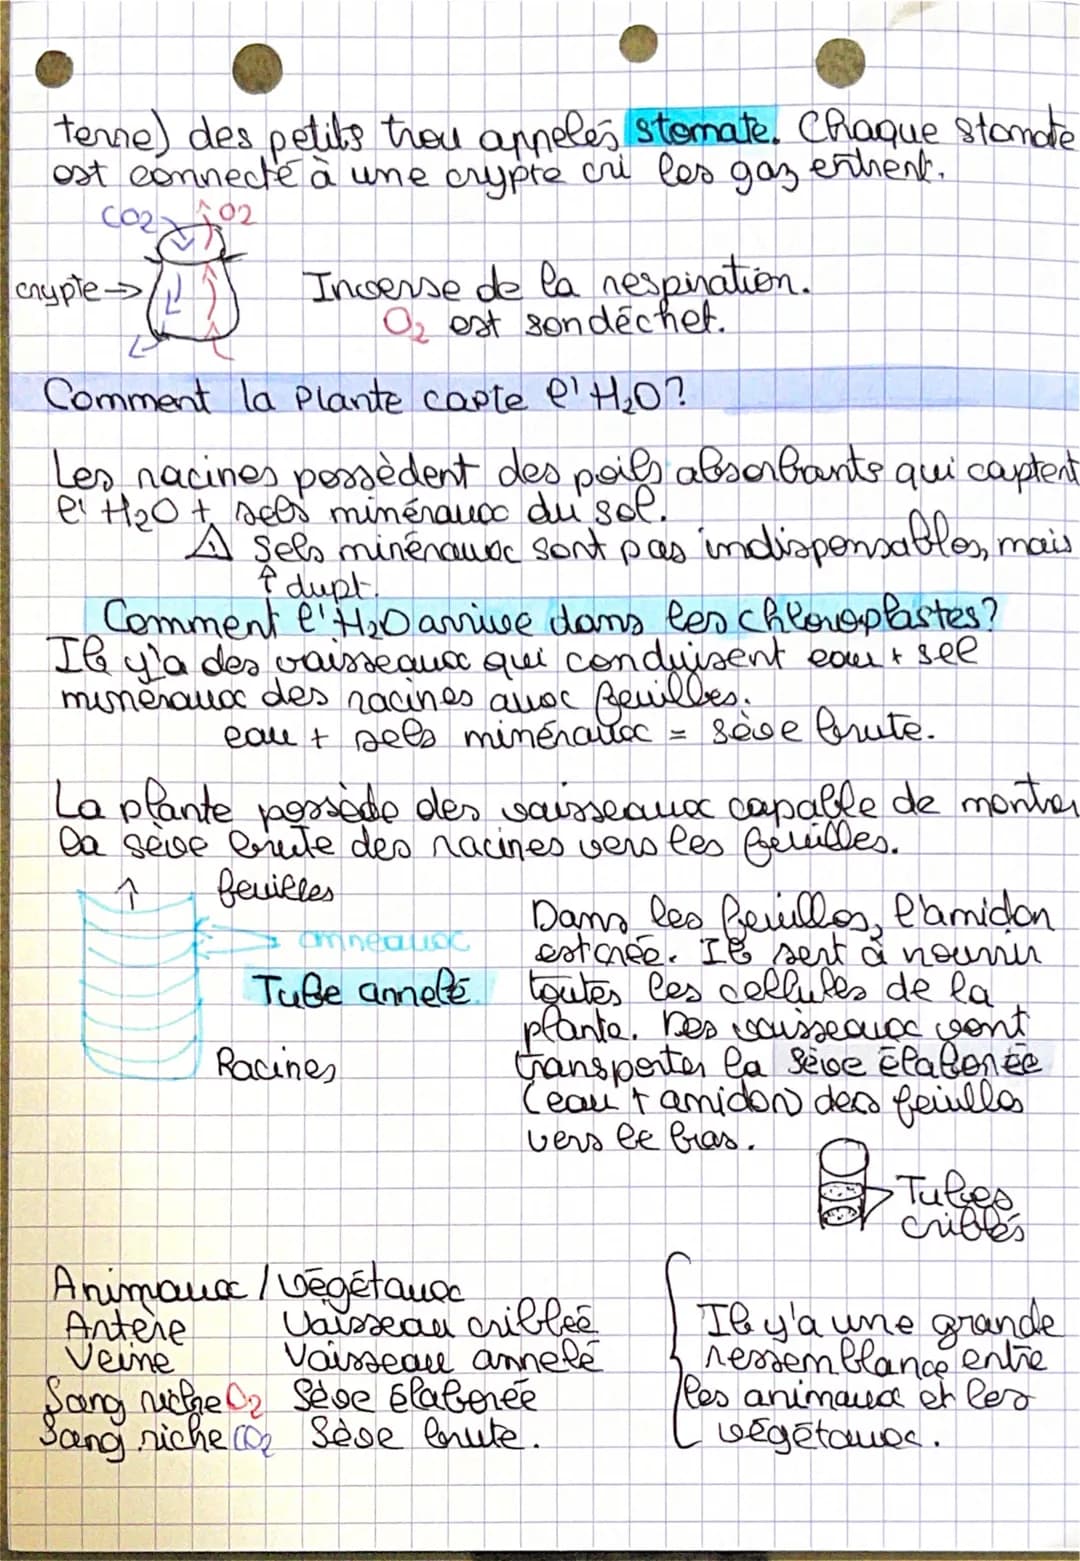 terne) des petits trou appelés stomate. Chaque stomate
est connecté à une crypte où les gaz entrent.
CO2 O2
crypte →
Inverse de la respiration.
O2 est son déchet.
Comment la plante capte l'H2O?
Les racines possèdent des poils absorbants qui captent
l'H2O + sels minéraux du sol.
⚠ Sels minéraux sont pas indispensables, mais
↑ dupt.
Comment l'H2O arrive dans les chloroplastes?
Il y'a des vaisseaux qui conduisent eau + sel
minéraux des racines aux feuilles.
eau + sels minéraux = sève brute.
La plante possède des vaisseaux capable de monter
la sève brute des racines vers les feuilles.
↑ feuilles
anneaux
Tube annelé
Racines
Dans les feuilles, l'amidon
est créé. Il sert à nourrir
toutes les cellules de la
plante. Des vaisseaux vont
transporter la sève élaborée
(eau + amidon) des feuilles
vers le bas.
Tubes
criblés
Animaux / végétaux
Artère Vaisseau criblé
Veine Vaisseau annelé
Sang riche O2 Sève élaborée
Sang riche CO2 Sève brute.
Il y'a une grande
ressemblance entre
les animaux et les
végétaux.